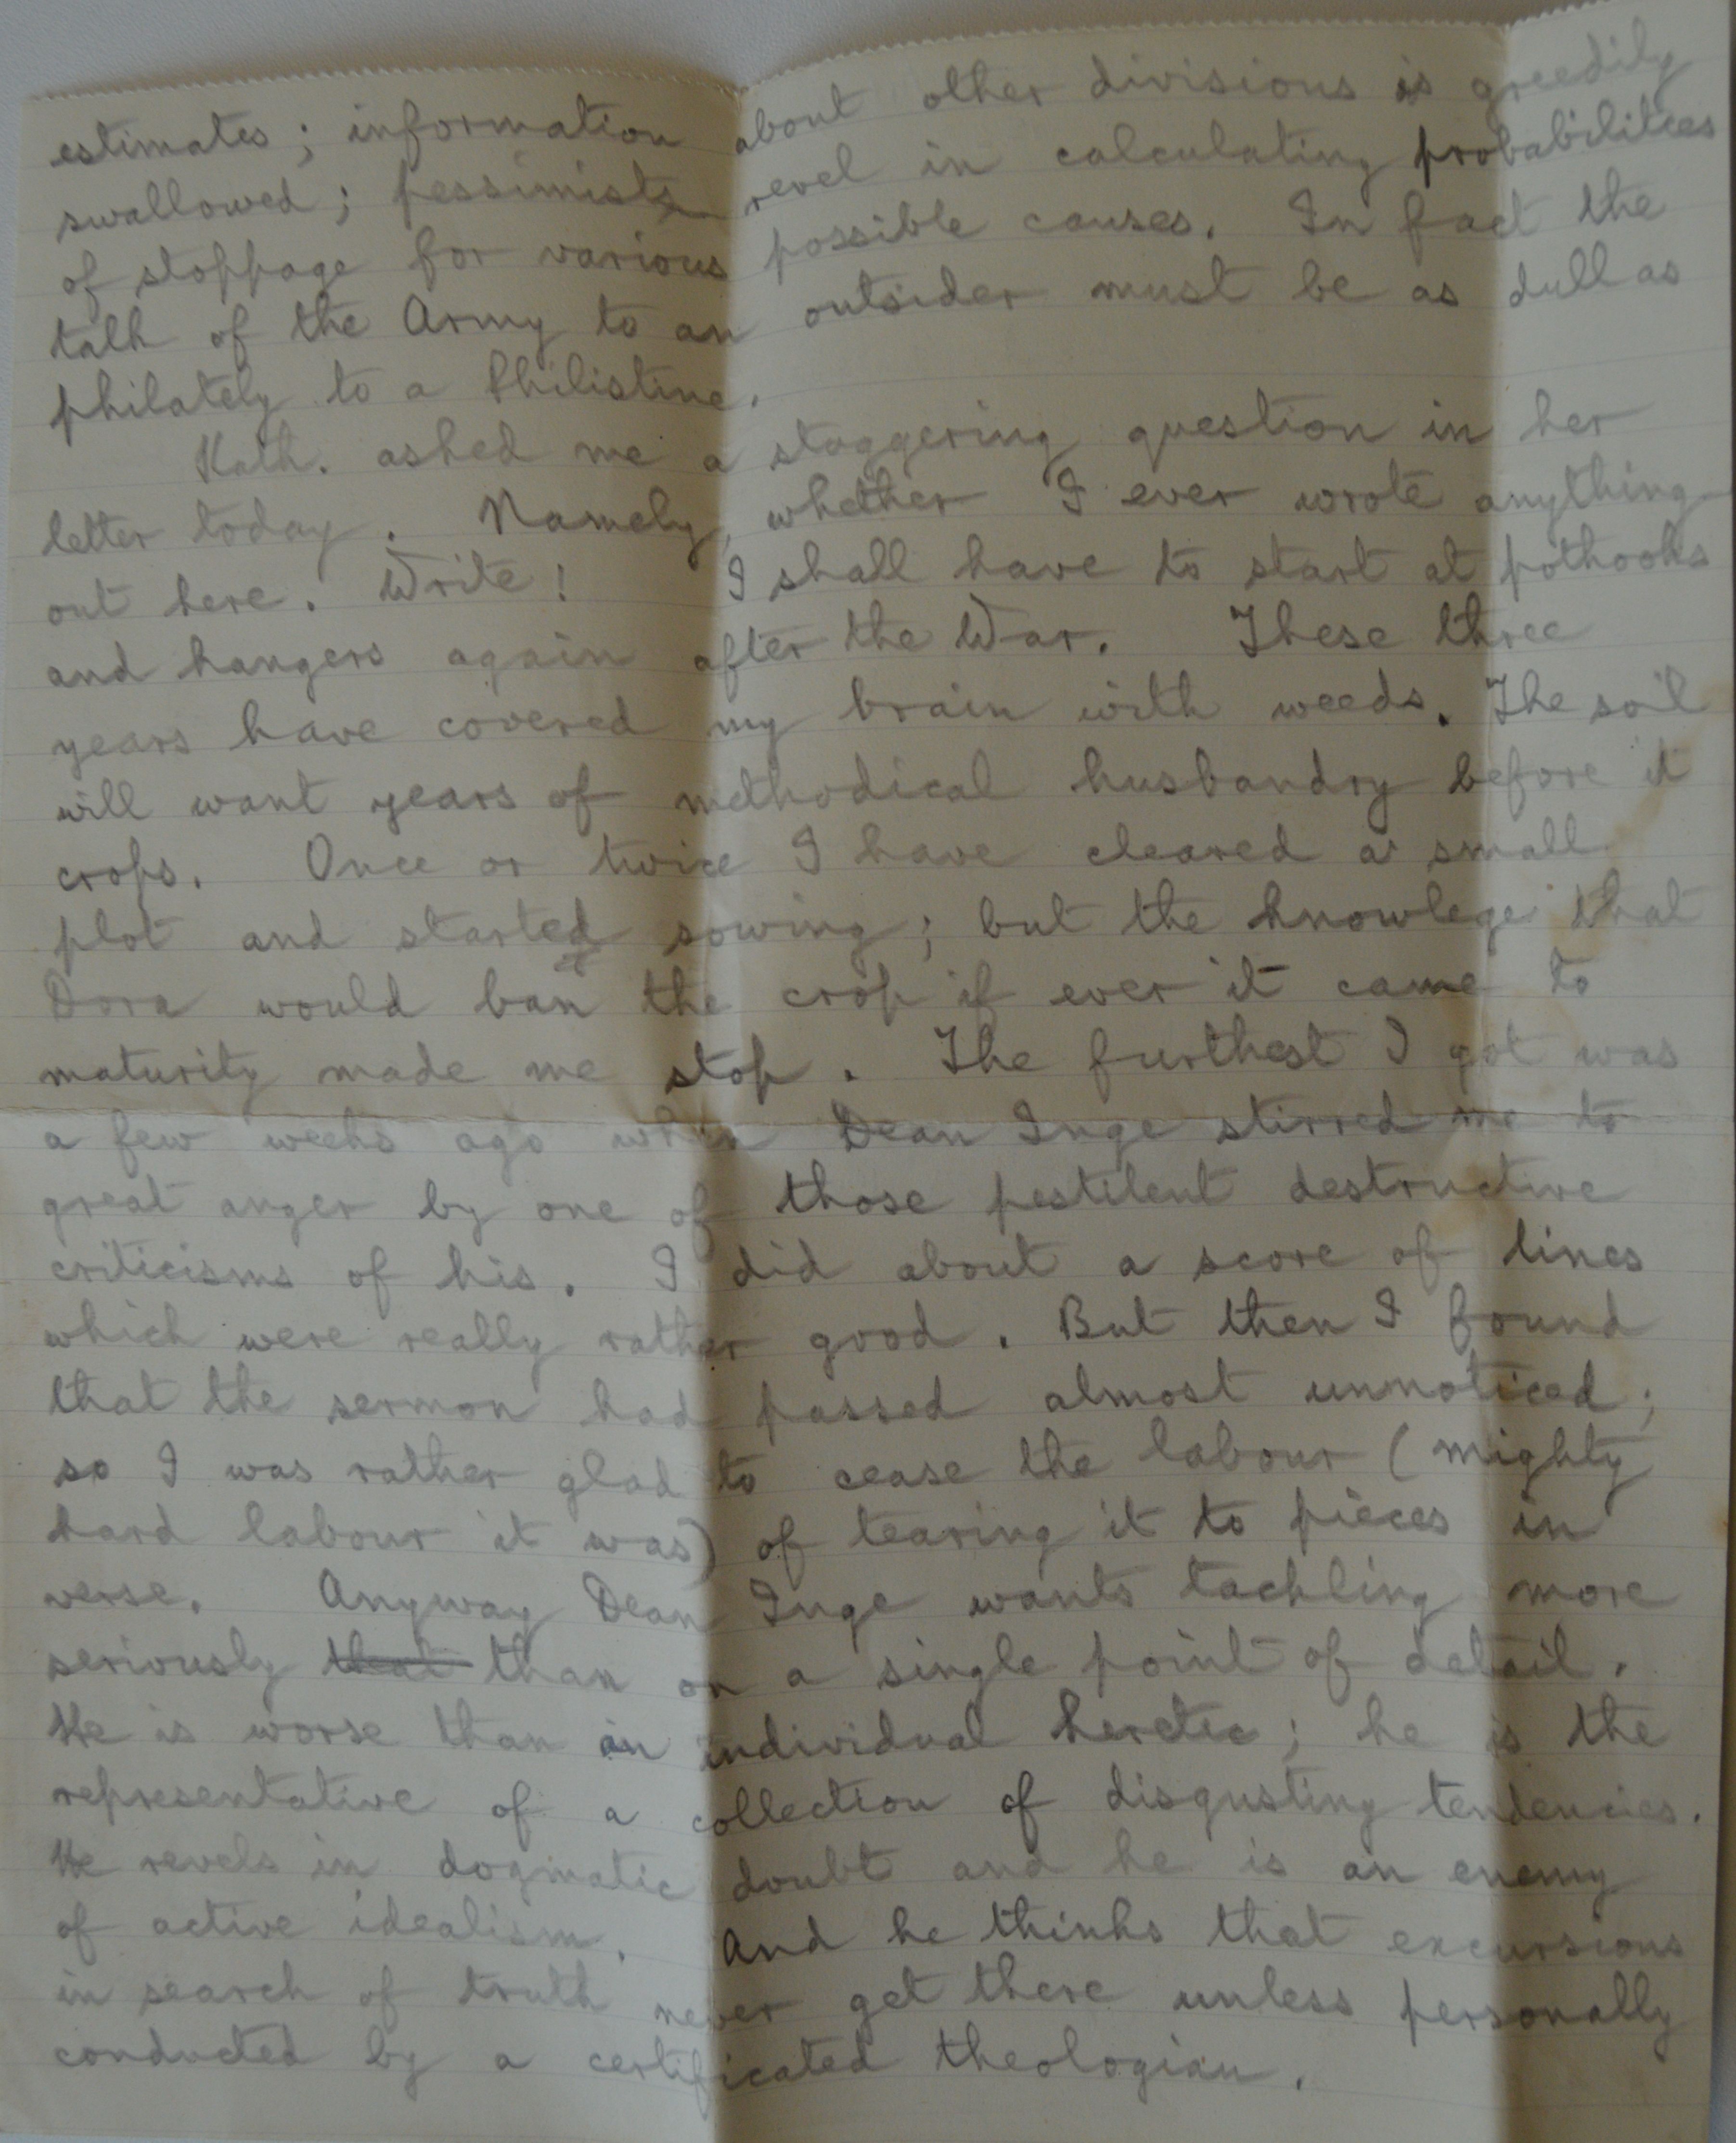 estimates; information about other divisions is greedily
swallowed; pessimists revel in calculating probabilities
of stoppage for various possible causes. In fact the
talk of the Army to an outsider must be as dull as
philately to a Philistine.
Kath. asked me a staggering question in her
letter today. Namely, whether I ever wrote anything
out here. Write! I shall have to start at pothooks
and hangers again after the War. These three
years have covered my brain with weeds. The soil
will want years of methodical husbandry before it
crops. Once or twice I have cleared a small
plot and started sowing; but the knowlege that
Dora would ban the crop if ever it came to
maturity made me stop. The furthest I got was
a few weeks ago when Dean Inge stirred me to
great anger by one of those pestilent destructive
criticisms of his. I did about a score of lines
which were really rather good. But then I found
that the sermon had passed almost unnoticed;
so I was rather glad to cease the labour (mighty
hard labour it was) of tearing it to pieces in
verse. Anyway Dean Inge wants tackling more
seriously that than on a single point of detail.
He is worse than an individual heretic; he is the
representative of a collection of disgusting tendencies.
He revels in dogmatic doubt and he is an enemy
of active idealism. And he thinks that excursions
in search of truth never get there unless personally
conducted by a certificated theologian.